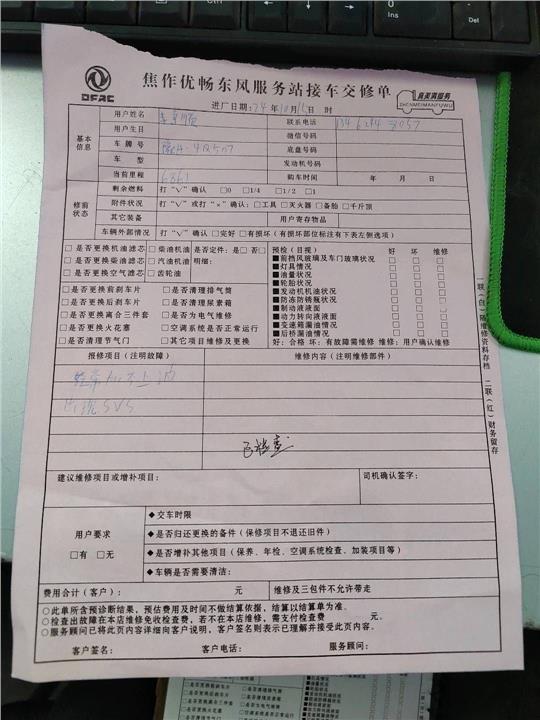 DFAC
焦作优畅东风服务站接车交修单
真美满服务
ZHENMEIMANFUWU
进厂日期:24 年 10 月 15 日 时
基本信息
用户姓名
联系电话
用户生日
微信号码
车 牌 号
底盘号码
车 型
发动机号码
当前里程 6861
购车时间 年 月 日
修前状态
剩余燃料 打“√”确认 □0 □1/4 □1/2 □1
附件状况 打“√”或打“×”确认:□工具 □灭火器 □备胎 □千斤顶
其它装备 用户寄存物品
车辆外部情况 打“√”确认 □完好 □有损坏(有损坏部位标注有下表左侧选项)
□是否更换机油滤芯 □柴油机油 是否定件:是□否□
□是否更换柴油滤芯 □汽油机油 明细:
□是否更换空气滤芯 □齿轮油
□是否更换前刹车片 □是否清理排气筒
□是否更换后刹车片 □是否清理尿素箱
□是否更换离合三件套 □是否为电气维修
□是否更换火花塞 □空调系统是否正常运行
□是否清理节气门 □其它项目维修及更换
预检(目视) 好 坏 维修
■前挡风玻璃及车门玻璃状况 □ □ □
■灯具情况 □ □ □
■油量状况 □ □ □
■轮胎状况 □ □ □
■发动机机油状况 □ □ □
■防冻防锈瓶状况 □ □ □
■制动液液面 □ □ □
■动力转向液液面 □ □ □
■变速箱漏油情况 □ □ □
■后桥漏油情况 □ □ □
好:合格 坏:有故障需维修 维修:用户确认维修
报修项目(注明故障) 维修内容(注明维修部件)
经常加不上油
出现SVS
已检查
建议维修项目或增补项目: 司机确认签字:
用户要求
□有 □无
◆交车时限
◆是否归还更换的备件(保修项目不退还旧件)
◆是否增补其他项目(保养、年检、空调系统检查、加装项目等)
◆车辆是否需要清洁:
费用合计(客户): 元 维修及三包件不允许带走
○此单所含预诊断结果,预估费用及时间不做结算依据,结算以结算单为准。
○检查出故障在本店维修免收检查费,若不在本店维修,需支付检查费 元。
○服务顾问已将此页内容详细向客户说明,客户签名则表示已理解并接受此页内容。
客户签名: 客户电话: 服务顾问:
一联(白)随维修资料存档 二联(红)财务留存
Ins
Del